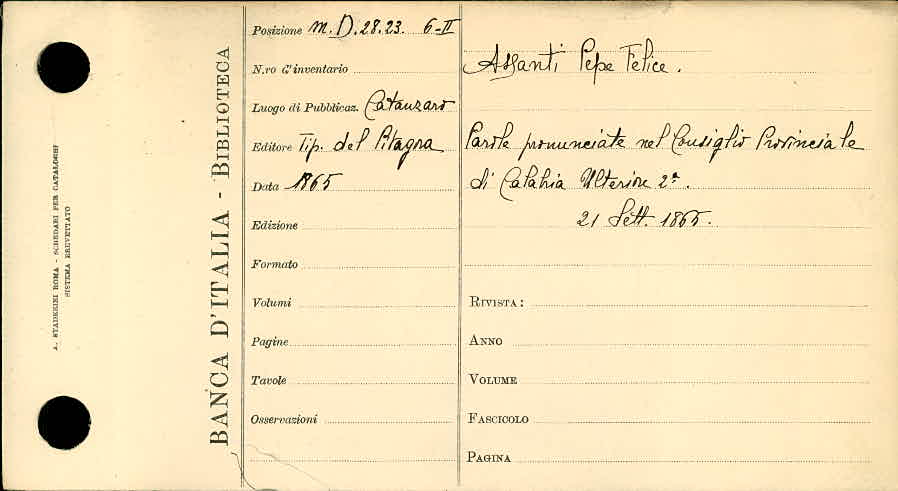 A. STADERINI ROMA - SCHEDARI PER CATALOGHI
SISTEMA BREVETTATO
BANCA D'ITALIA - BIBLIOTECA
Posizione m. D. 28.23. 6-II
N.ro d'inventario
Luogo di Pubblicaz. Catanzaro
Editore Tip. del Pitagora
Data 1865
Edizione
Formato
Volumi
Pagine
Tavole
Osservazioni
Assanti Pepe Felice.
Parole pronunciate nel Consiglio Provinciale
di Calabria Ulteriore 2ª.
21 Sett. 1865.
RIVISTA:
ANNO
VOLUME
FASCICOLO
PAGINA